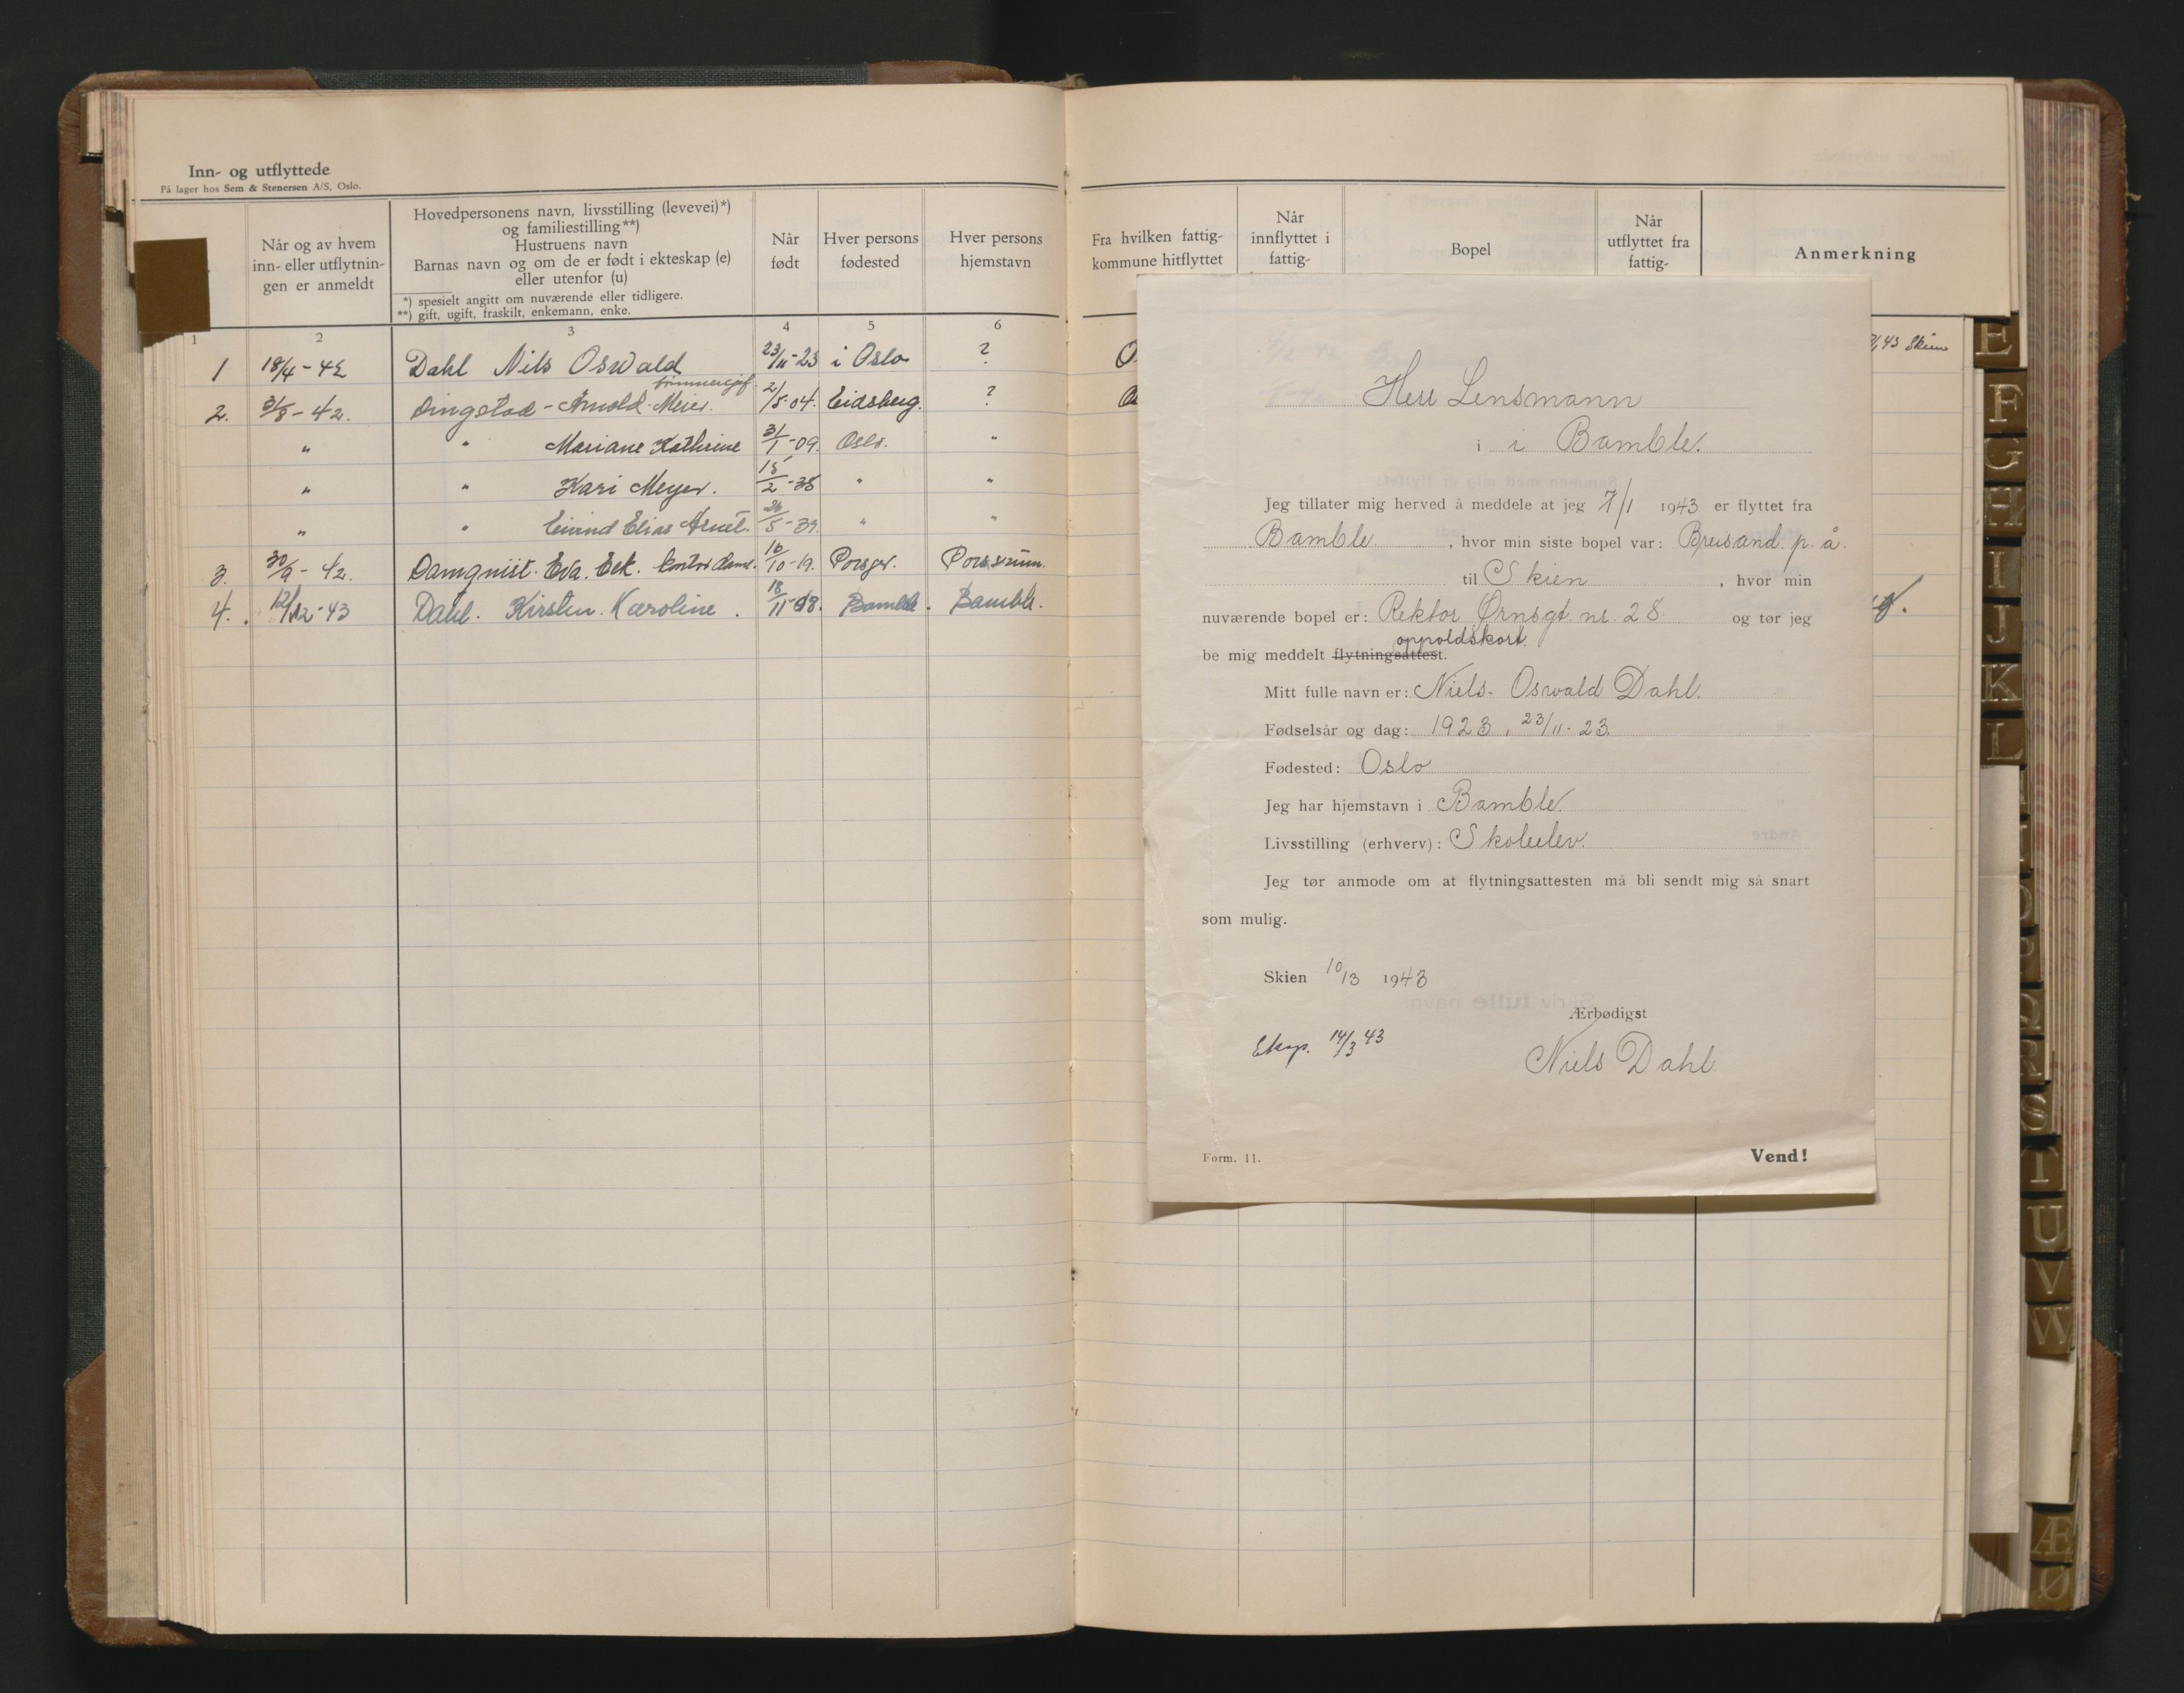 Inn- og utflyttede
På lager hos Sem & Stenersen A/S, Oslo.
Når og av hvem
inn- eller utflytnin-
gen er anmeldt
Hovedpersonens navn, livsstilling (levevei)*)
og familiestilling**)
Hustruens navn
Barnas navn og om de er født i ekteskap (e)
eller utenfor (u)
*) spesielt angitt om nuværende eller tidligere.
**) gift, ugift, fraskilt, enkemann, enke.
Når
født
Hver persons
fødested
Hver persons
hjemstavn
1 2 3 4 5 6
1 18/4-42 Dahl Nils Oswald 23/11-23 i Oslo ?
2. 31/8-42. Dingstad-Arnold-Meier. 2/5-04. Eidsberg. ?
" " Mariane Kathrine 31/1-09. Oslo. "
" " Kari Meyer. 15/2-35 " "
" " Eivind Elias 26/5-39. " "
3. 30/9-42. Damqvist. Eva. Kontordame. 16/10-19. Porsgr.
4. 43 Dahl. Kirstin. Karoline. 18/11- Bamble. Bamble.
Fra hvilken fattig-
kommune hitflyttet
Når
innflyttet i
fattig-
Bopel
Når
utflyttet fra
fattig-
Anmerkning
43 Skien
Herr Lensmann
i i Bamble.
Jeg tillater mig herved å meddele at jeg 7/1 1943 er flyttet fra
Bamble , hvor min siste bopel var: p. å.
til Skien , hvor min
nuværende bopel er: Rektor Ørnsgt. nr. 28. og tør jeg
oppoldskort
be mig meddelt flytningsattest.
Mitt fulle navn er: Niels- Oswald Dahl.
Fødselsår og dag: 1923, 23/11-23.
Fødested: Oslo
Jeg har hjemstavn i Bamble
Livsstilling (erhverv): Skoleelev.
Jeg tør anmode om at flytningsattesten må bli sendt mig så snart
som mulig.
Skien 10/3 1943
Ærbødigst
Eksp. 14/3 43
Niels Dahl
Form. 11.
Vend!
E
F
G
H
I
J
K
L
Q
R
S
T
U
V
W
Æ
Ø